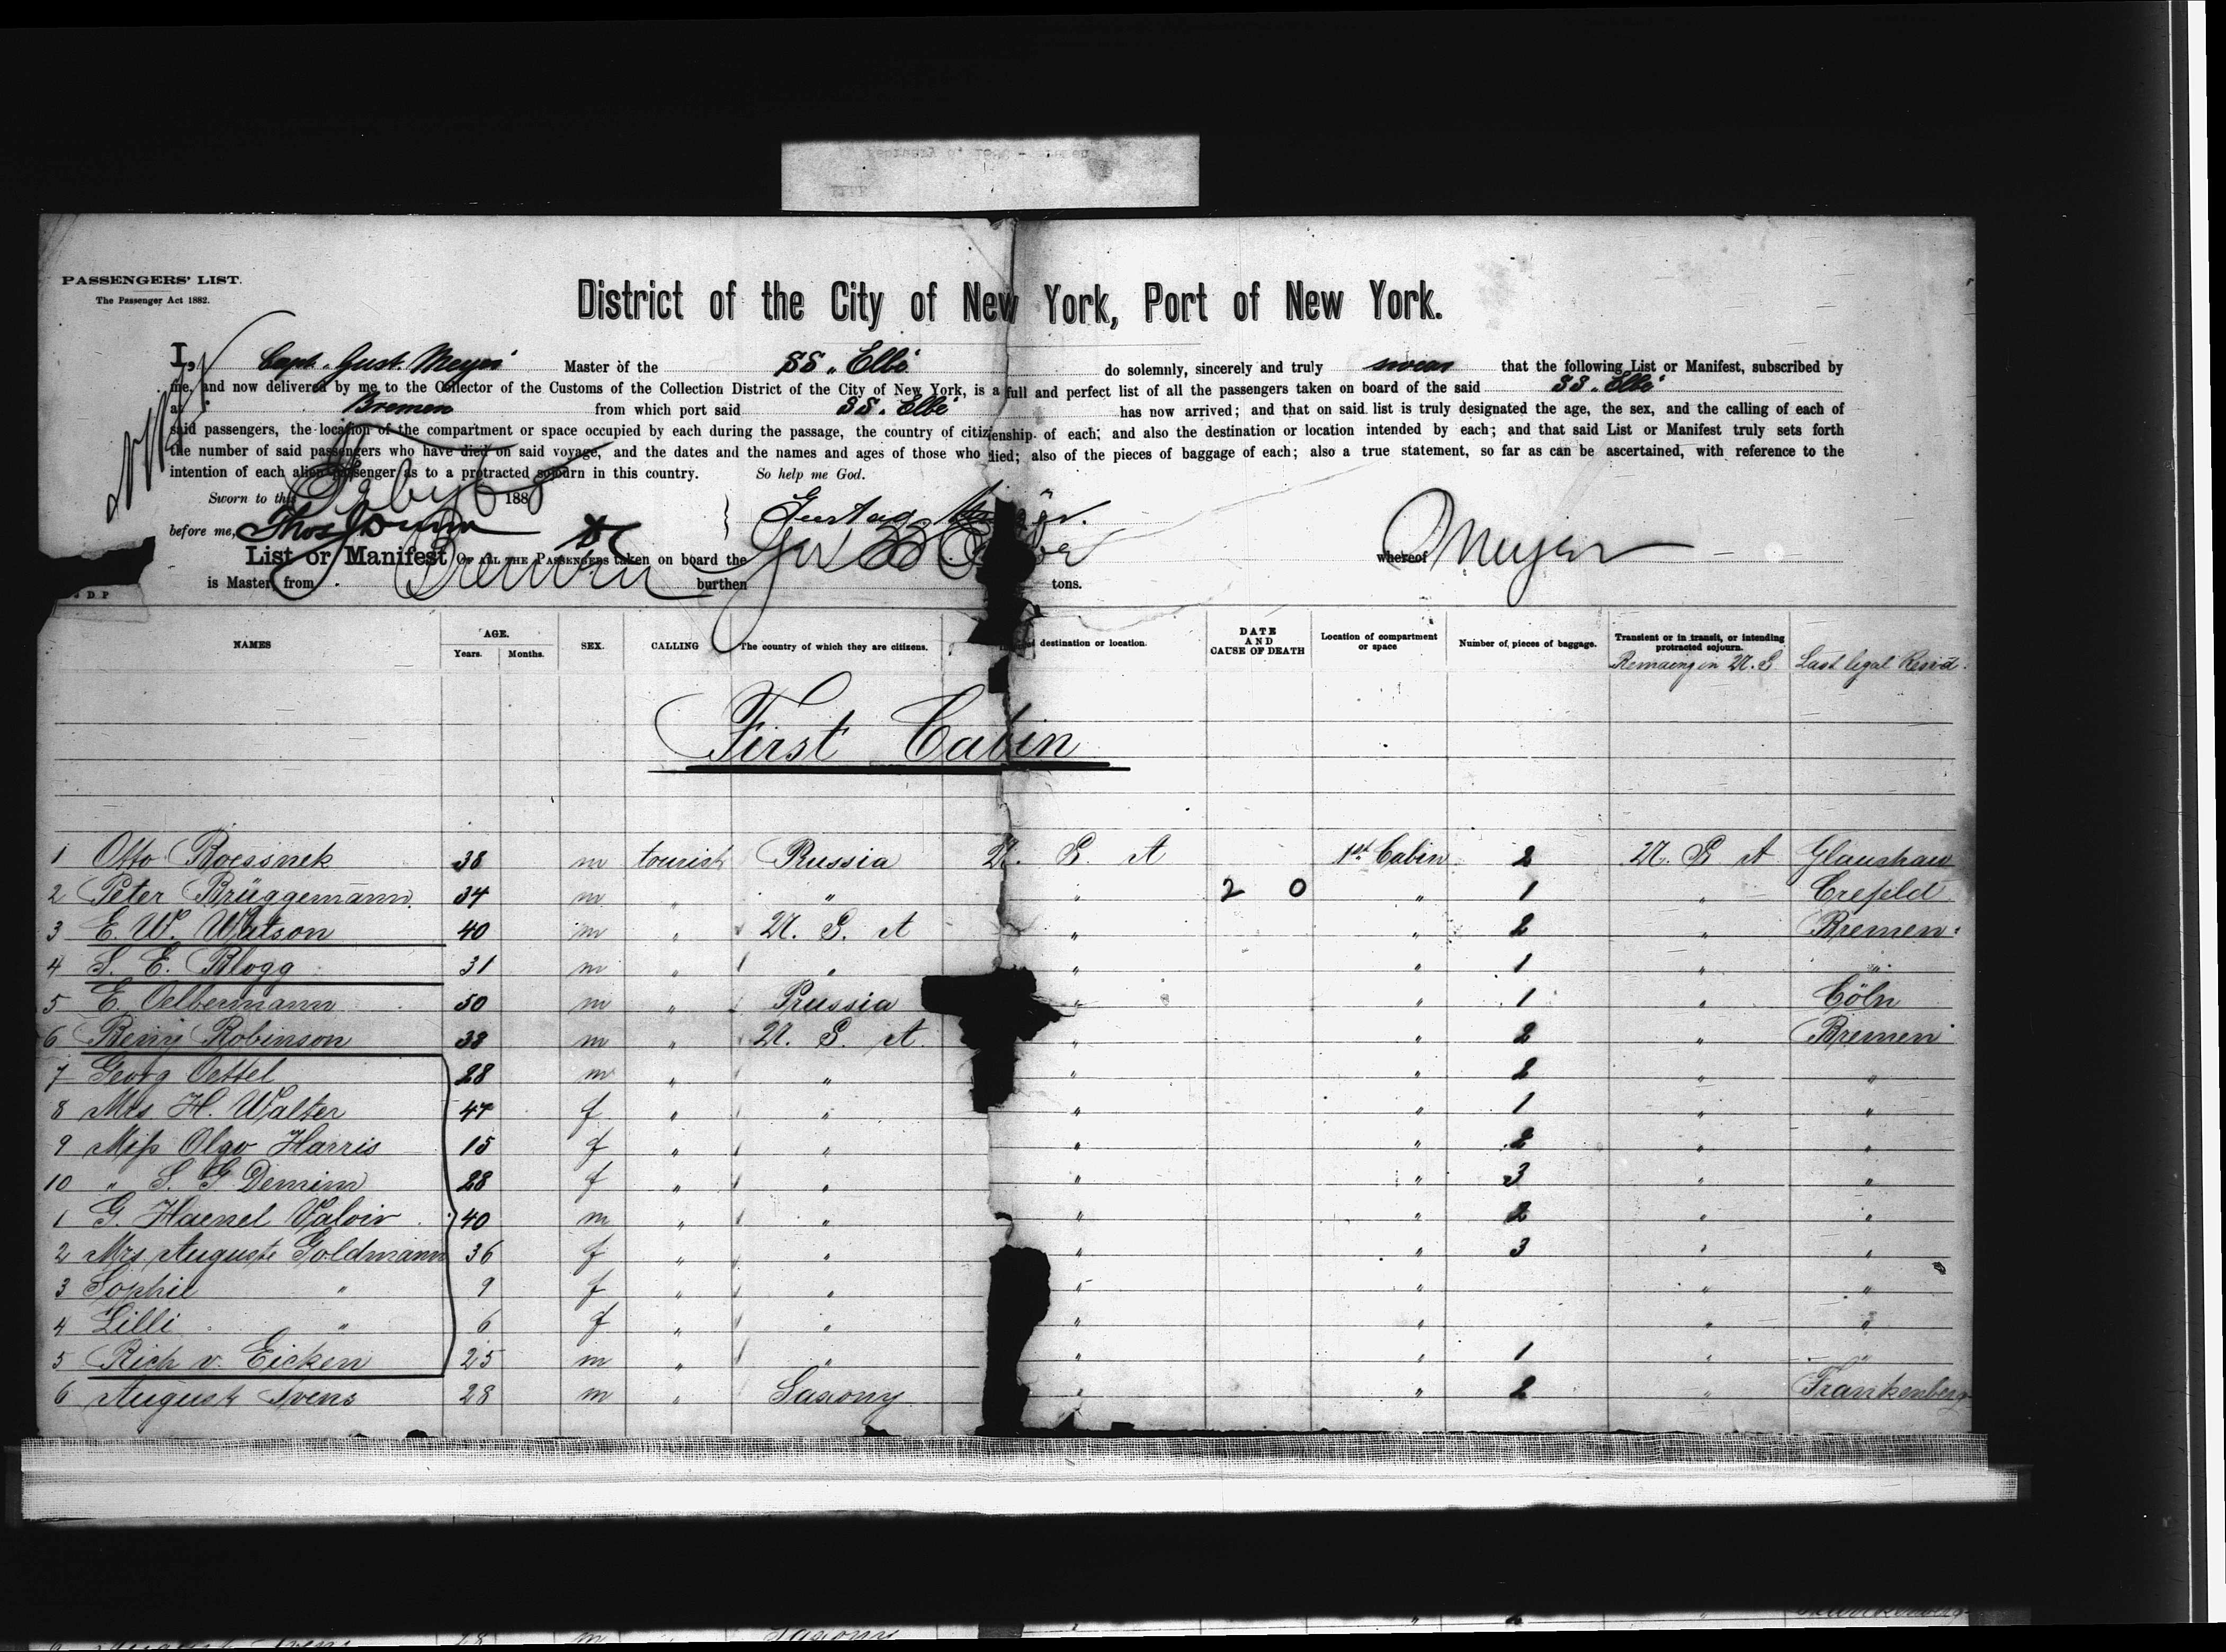 PASSENGERS' LIST.
The Passenger Act 1882.
District of the City of New York, Port of New York.
I, Capt. Gust. Meyer Master of the SS. „Elbe" do solemnly, sincerely and truly swear that the following List or Manifest, subscribed by
me, and now delivered by me to the Collector of the Customs of the Collection District of the City of New York, is a full and perfect list of all the passengers taken on board of the said SS. „Elbe"
at Bremen from which port said SS. Elbe has now arrived; and that on said list is truly designated the age, the sex, and the calling of each of
said passengers, the location of the compartment or space occupied by each during the passage, the country of citizenship of each; and also the destination or location intended by each; and that said List or Manifest truly sets forth
the number of said passengers who have died on said voyage, and the dates and the names and ages of those who died; also of the pieces of baggage of each; also a true statement, so far as can be ascertained, with reference to the
intention of each alien passenger as to a protracted sojourn in this country. So help me God.
Sworn to this 188
before me, Thos Gustav Meyer
List or Manifest OF ALL THE PASSENGERS taken on board the SS Elbe whereof Meyer
is Master, from Bremen burthen tons.
NAMES AGE. Years. Months. SEX. CALLING The country of which they are citizens. destination or location. DATE AND CAUSE OF DEATH Location of compartment or space Number of pieces of baggage. Transient or in transit, or intending protracted sojourn.
Remaing in U.S Last legal Resid.
First Cabin
1 Otto Roessnek 38 m tourist Russia U. S. A 1st Cabin 2 U. S. A Glauchau
2 Peter Brüggemann 34 m " " " 2 0 " 1 " Crefeld
3 E. W. Watson 40 m " U. S. A " " 2 " Bremen
4 S. E. Blogg 31 m " " " " 1 " "
5 E. Oelbermann 50 m " Prussia " " 1 " Cöln
6 Beny Robinson 38 m " U. S. A. " " 2 " Bremen
7 Georg Oettel 28 m " " " " 2 " "
8 Mrs H. Walter 47 f " " " " 1 " "
9 Miss Olga Harris 15 f " " " " 2 " "
10 " S. G. Demim 28 f " " " " 3 " "
1 G. Haenel Valoir 40 m " " " " 2 " "
2 Mrs Auguste Goldmann 36 f " " " " 3 " "
3 Sophie " 9 f " " " " " "
4 Lilli " 6 f " " " " " "
5 Rich v. Eicken 25 m " " " " 1 " "
6 August Ivens 28 m " Saxony " " 2 " Frankenberg